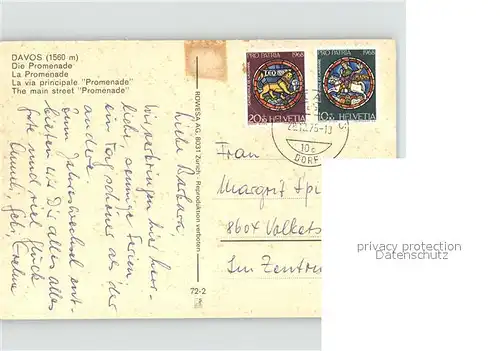 DAVOS (1560 m)
Die Promenade
La Promenade
La via principale "Promenade"
The main street "Promenade"
Liebe Barbara
Wir verbringen hier herr-
liche, sonnige Ferien,
ein Tag schöner als der
andere.
Zum Jahreswechsel ent-
bieten wir Dir alles alles
Gute und viel Glück
RDWESA AG, 8031 Zürich - Reproduktion verboten
72-2
PRO PATRIA 1968
LEO
20+10 HELVETIA
PRO PATRIA 1968
10+10 HELVETIA
10c
DORF
Frau
Margrit
8604 Volkets
Im Zentrum
privacy protection
Datenschutz